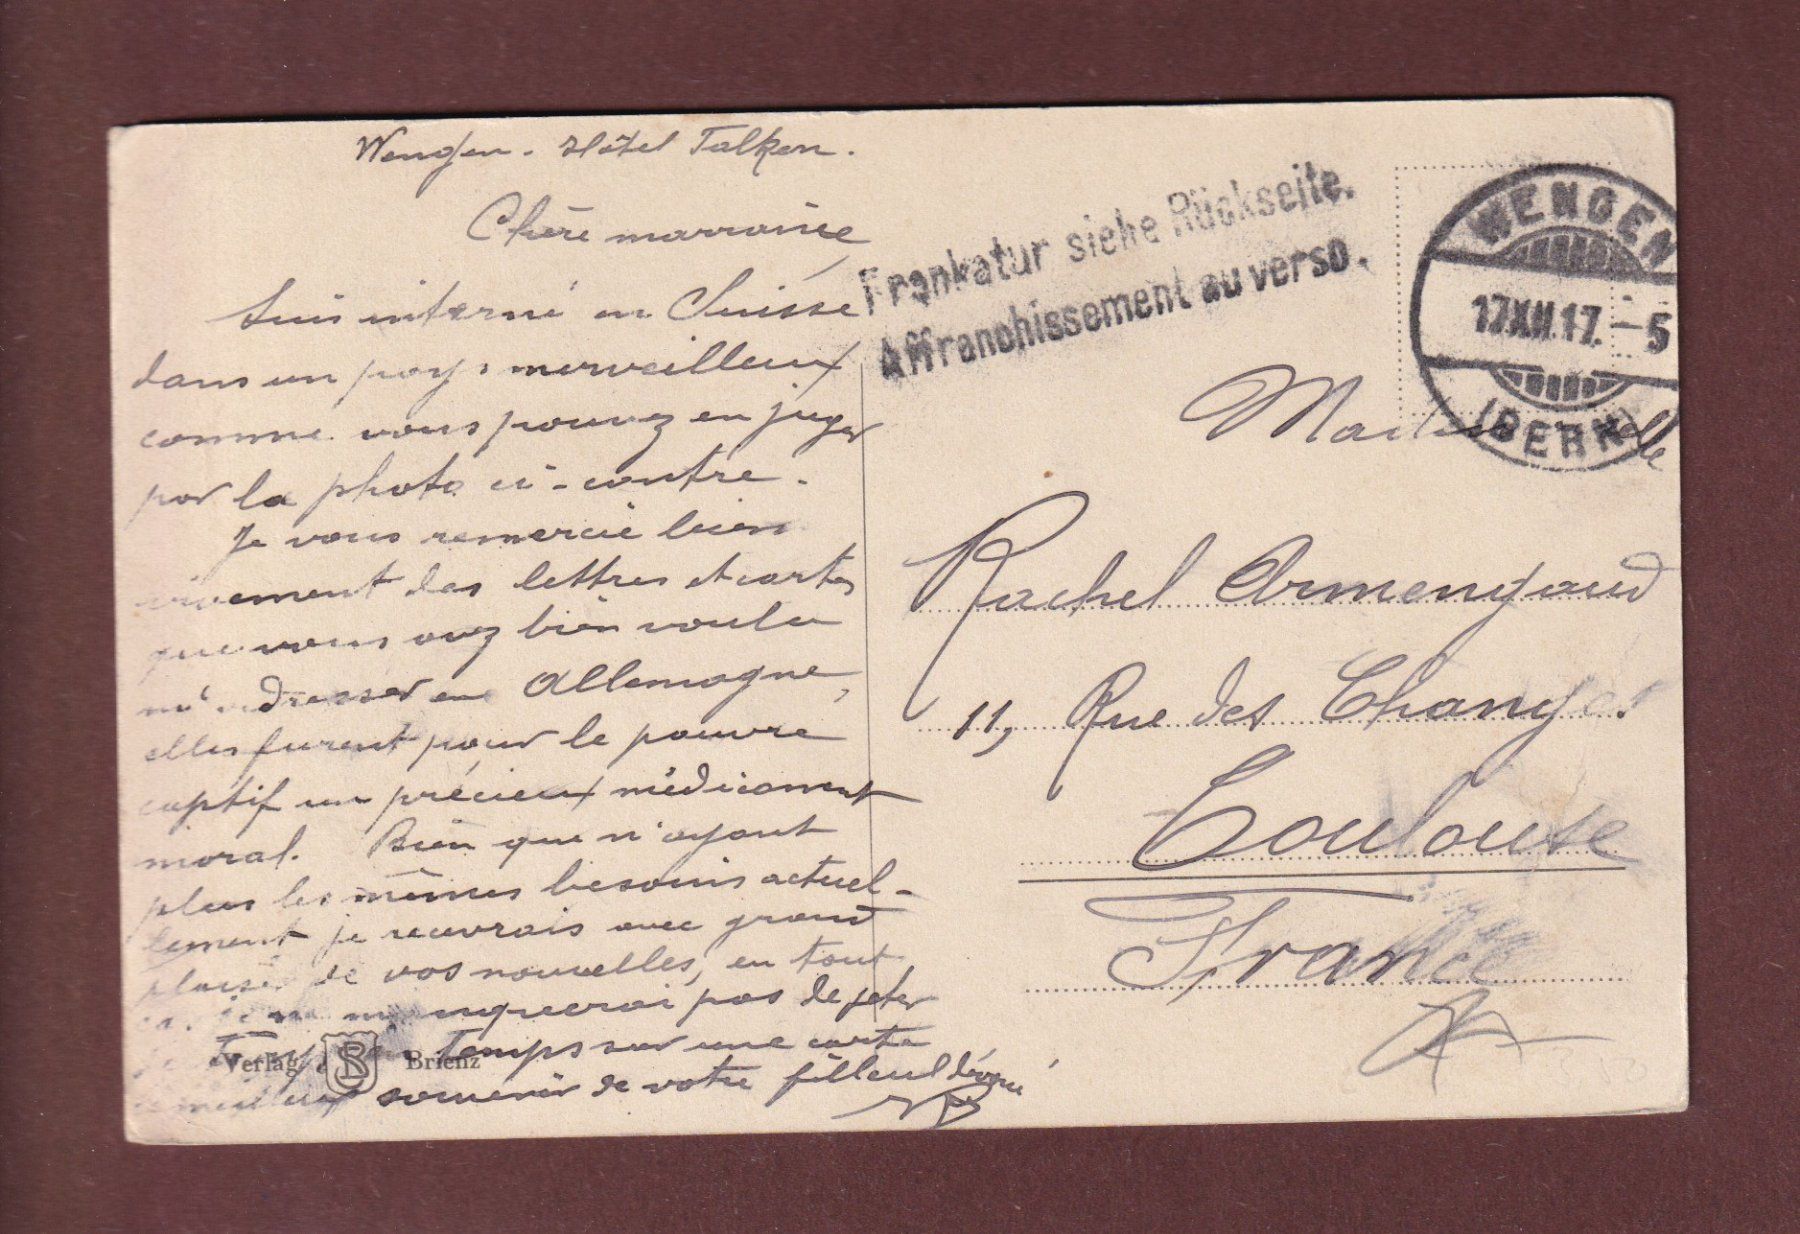 Wengen. Hôtel Falken.
Chère marraine
Suis interné en Suisse
dans un pays merveilleux
comme vous pouvez en juger
par la photo ci-contre.
Je vous remercie bien
vivement des lettres et cartes
que vous avez bien voulu
m'adresser en Allemagne,
elles furent pour le pauvre
captif un précieux médicament
moral. Bien que n'ayant
plus les mêmes besoins actuel-
lement je recevrais avec grand
plaisir de vos nouvelles, en tout
manquerai pas de jeter
temps sur une carte
souvenir de votre filleul dévoué
Verlag Brienz
Frankatur siehe Rückseite.
Affranchissement au verso.
WENGEN
17.XII.17.-5
(BERN)
Mademoiselle
Rachel Armengaud
11, Rue des Changes
Toulouse
France